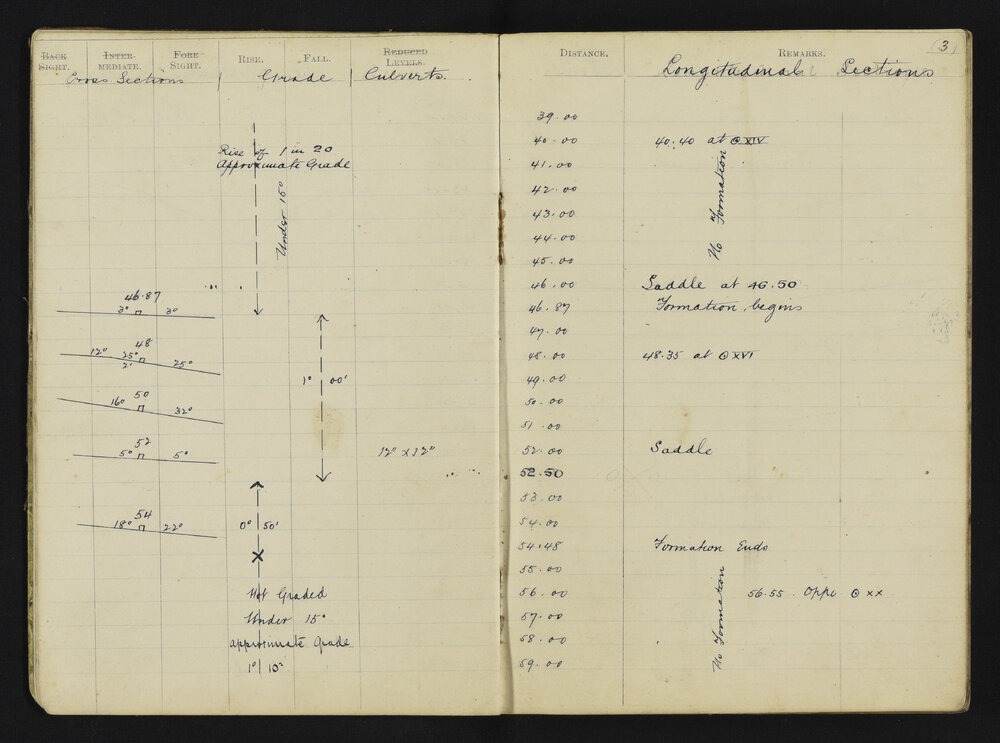 BACK SIGHT. INTER-MEDIATE. FORE SIGHT. RISE. FALL. REDUCED LEVELS.
Cross Sections Grade Culverts.
Rise of 1 in 20
Approximate Grade
Under 15°
46.87
3° 3°
48
12° 25° 25°
2'
1° 00'
50
16° 32°
52
5° 5° 12" x 12"
54
18° 22° 0° 50'
Not Graded
Under 15°
Approximate Grade
1° 10'
(3)
DISTANCE. REMARKS.
Longitudinal Sections
39.00
40.00 40.40 at ⊙ XIV
41.00
42.00
No Formation
43.00
44.00
45.00
46.00 Saddle at 46.50
46.87 Formation begins
47.00
48.00 48.35 at ⊙ XVI
49.00
50.00
51.00
52.00 Saddle
52.50
53.00
54.00
54.48 Formation Ends
55.00
56.00 56.55 Oppo ⊙ XX
57.00
No Formation
58.00
59.00